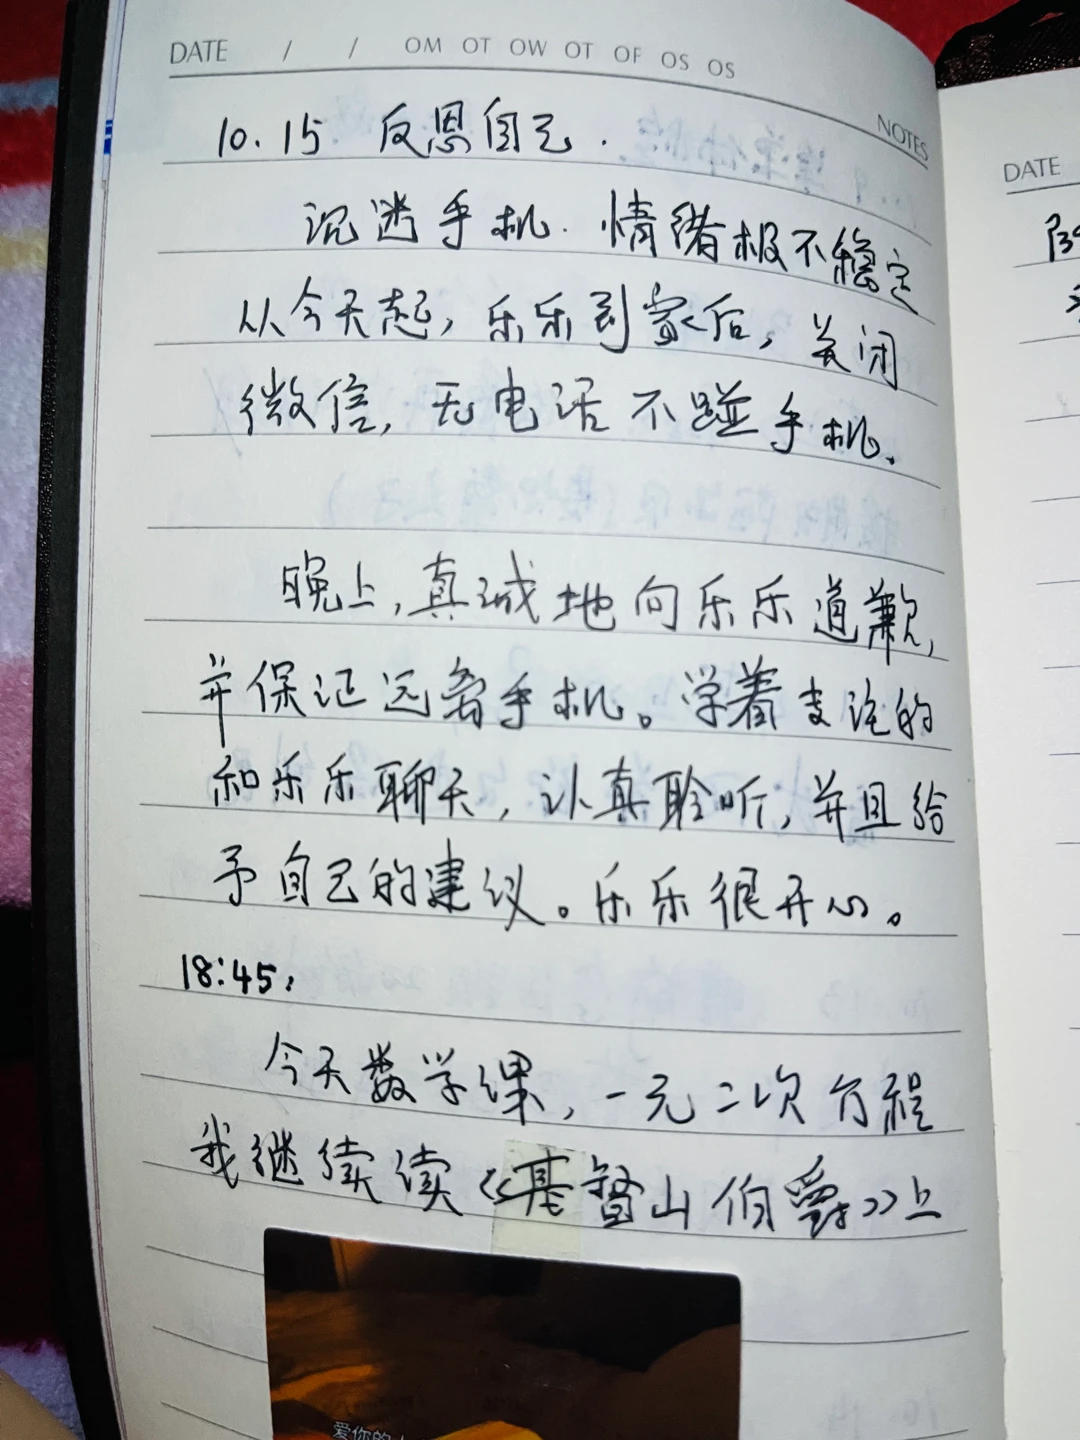 DATE / / OM OT OW OT OF OS OS
NOTES
10.15 反思自己.
沉迷手机.情绪极不稳定
从今天起,乐乐到家后,关闭
微信,无电话不碰手机。
晚上,真诚地向乐乐道歉,
并保证远离手机。学着支浣的
和乐乐聊天,认真聆听,并且给
予自己的建议。乐乐很开心。
18:45,
今天数学课,一元二次方程
我继续读《基督山伯爵》上
爱你的
DATE